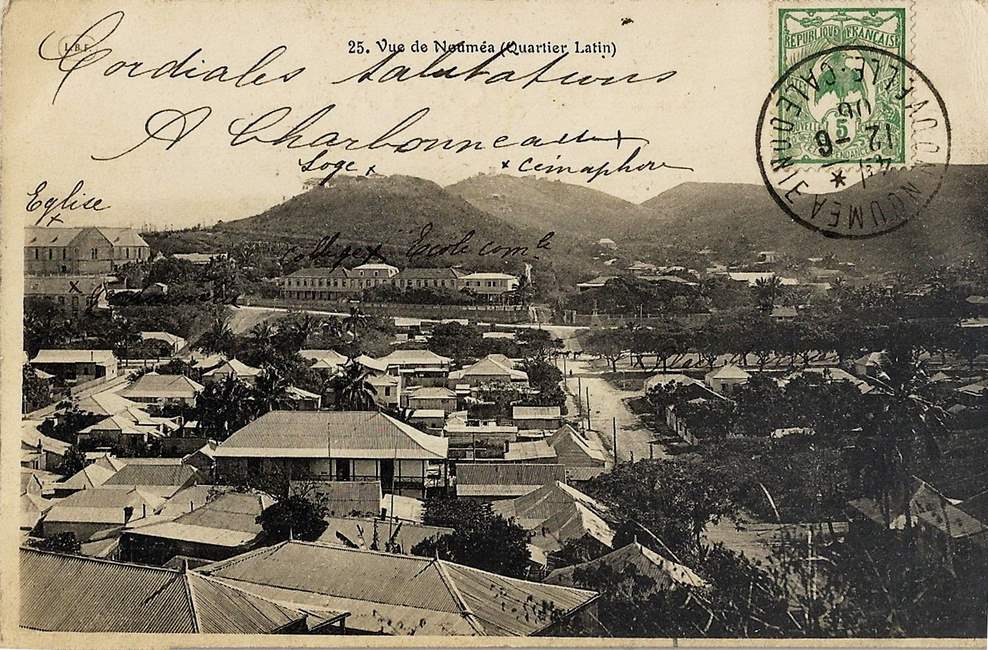 L.B.F.
25. Vue de Nouméa (Quartier Latin)
Cordiales salutations
A Charbonneaux
Loge x
x Cémaphore
Eglise
x
College x
Ecole com le
x
REPUBLIQUE FRANÇAISE
5
NOUMÉA
NLLE CALEDONIE
12 -6
06